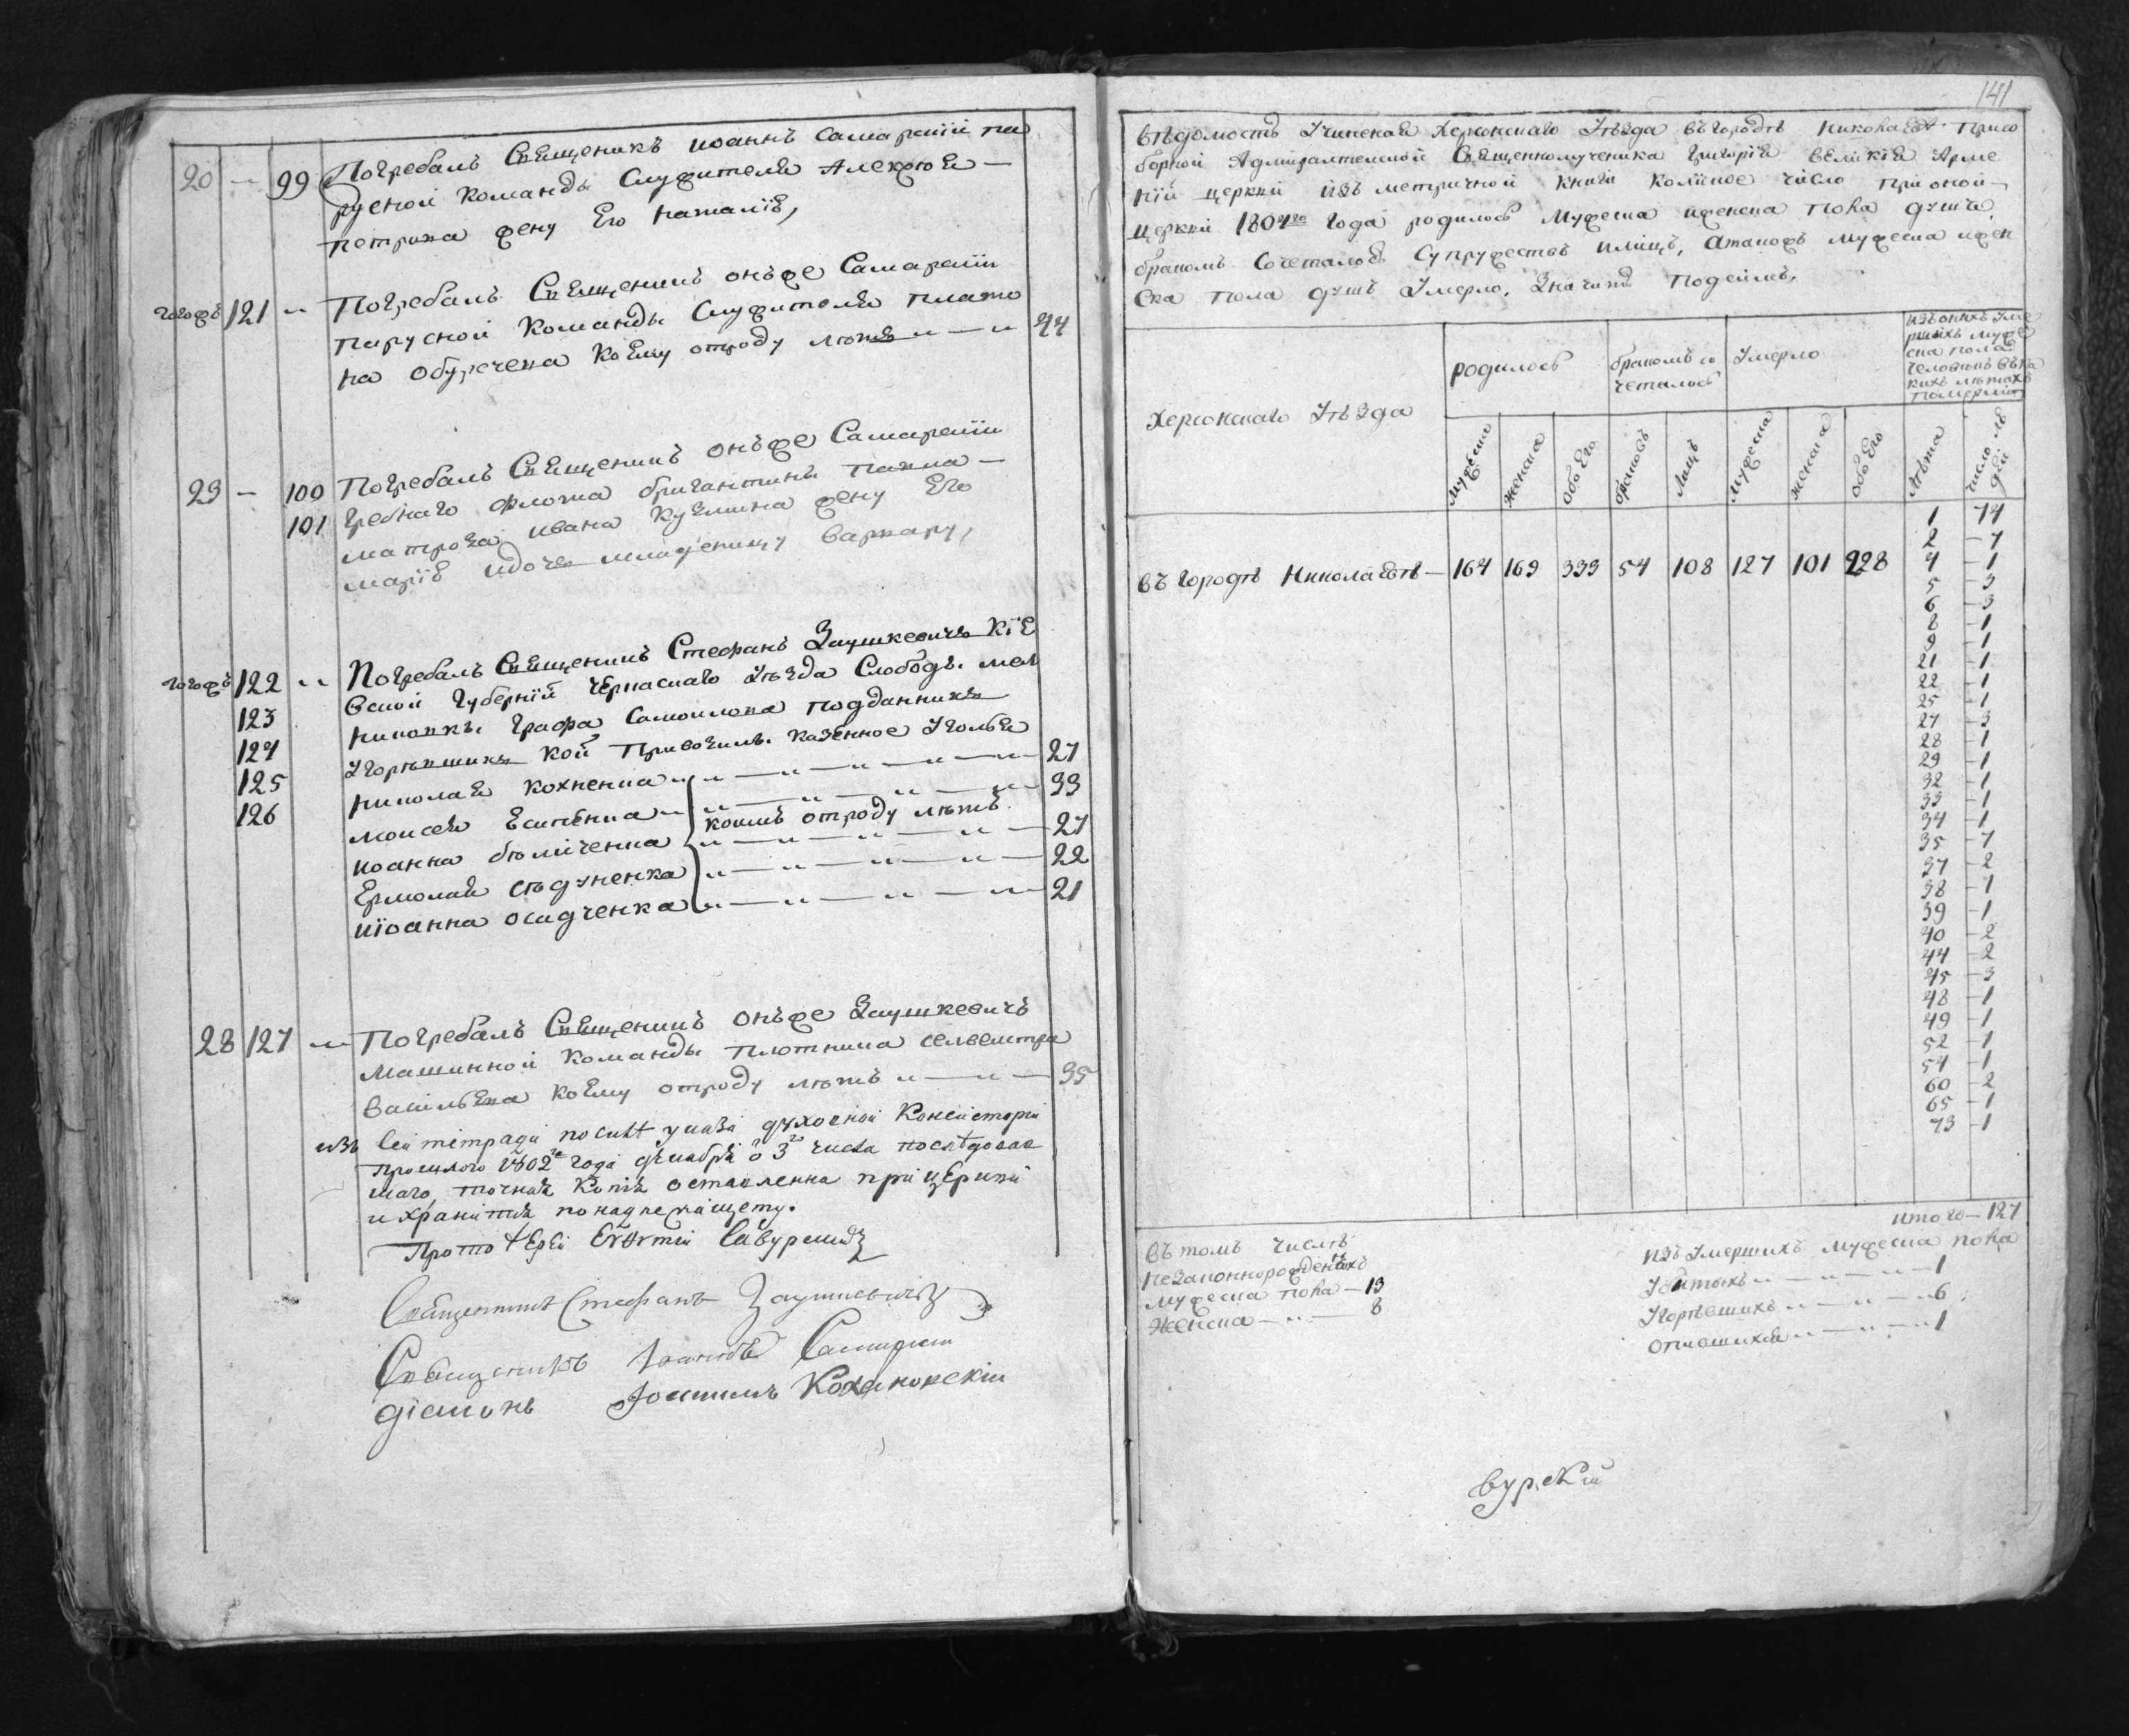 20 — 99 Погребалъ Священикъ иоаннъ Самарскій па
русной Команды Служителя Алексѣя —
петрова жену Его наталію,
тогожъ 121 „ Погребалъ Священикъ онъже Самарскій
парусной Команды Служителя плато
на обуречена коему отроду лѣтъ „ — „ 44
23 — 100 Погребалъ Священикъ онъже Самарскій
101 гребнаго флота бригантины павла —
матроза ивана Кузмина жену Его
марію идочь младеницу варвару,
тогожъ 122 „ Погребалъ Священикъ Стефанъ Заушкевичь Кіе
123 вской Губерніи Черкаскаго Уѣзда Слободы мел
124 никовки Графа Самоилова подданныхъ
125 Угорѣвшихъ кои Привозили казенное Уголье
126 николая кохненка „ — „ — „ — „ — 27
моисея Есипенка „ — „ — „ — „ — 33
иоанна бѣличенка коимъ отроду лѣтъ — 27
Ермолая сѣдуненка „ — „ — „ — 22
иіоанна осадченка „ — „ — „ — 21
28 127 „ Погребалъ Священикъ онъже Заушкевичъ
Машинной Команды плотника селвестра
васильева коему отроду лѣтъ „ — „ — 35
изъ сей тетради по силѣ указа духовной Консисторіи
прошлого 1802го года декабря 3го числа последовав
шаго, точная Копія оставленна при церкви
и хранится по надлежащему.
Протоіерей Евѳтій Савурскій
Священникъ Стефанъ Заушкевичъ
Священикъ Іоаннъ Самарскій
діаконъ Іоакимъ Кохановскій
141
Вѣдомость Учиненая Херсонскаго Уѣзда въгородѣ Николаевѣ присо
борной Адмиралтейской Священномученика Григорія великія Арме
ніи церкви изъ метричной книги Коликое число прионой
церкви 1804го года родилось Мужеска иженска пола душъ,
бракомъ Сочеталось Супружествъ илицъ, Атакожъ мужеска ижен
ска пола душъ Умерло, Значитъ подсимъ.
Херсонскаго Уѣзда
родилось
бракомъ со
четалось
Умерло
изъонихъ Уме
ршихъ муже
ска пола
человѣкъ въка
кихъ лѣтахъ
померли
мужеска
женска
обоЕго
браковъ
Лицъ
мужеска
женска
обоЕго
лѣта
число лю
дей
въ городѣ Николаевѣ — 164 169 333 54 108 127 101 228
1 — 74
2 — 7
4 — 1
5 — 3
6 — 3
8 — 1
9 — 1
21 — 1
22 — 1
25 — 1
27 — 3
28 — 1
29 — 1
32 — 1
33 — 1
34 — 1
35 — 7
37 — 2
38 — 1
39 — 1
40 — 2
44 — 2
45 — 3
48 — 1
49 — 1
52 — 1
54 — 1
60 — 2
65 — 1
73 — 1
итого — 127
въ томъ числѣ
незаконнорожденныхъ
мужеска пола — 13
женска — „ — 8
изъ Умершихъ мужеска пола
Убитыхъ „ — „ — „ — 1
Угорѣвшихъ „ — „ — „ 6
опившихся „ — „ — „ 1
вурскій